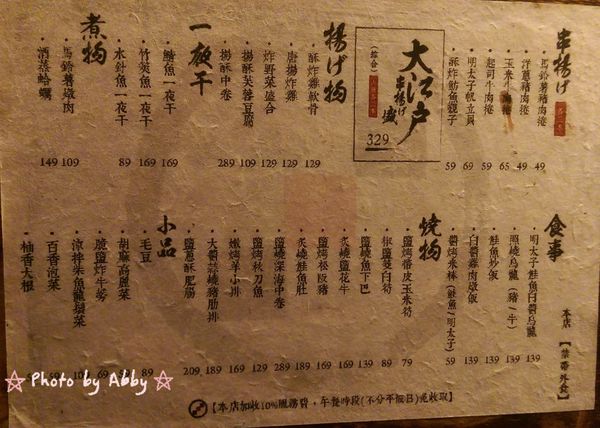 串揚げ
馬鈴薯豬肉捲 49
洋蔥豬肉捲 49
玉米牛 65
起司牛肉捲 59
明太子帆立貝 69
酥炸魴魚親子 59
大江戶
串揚げ
盛
(綜合)
329
揚げ物
酥炸雞軟骨 129
唐揚炸雞 129
炸野菜盛合 129
揚酥芙蓉豆腐 109
揚酥中卷 289
一夜干
鯖魚一夜干 169
竹筴魚一夜干 169
水針魚一夜干 89
煮物
馬鈴薯燉肉 109
酒蒸蛤蠣 149
食事
本店【禁帶外食】
明太子鮭魚白醬烏龍 139
照燒烏龍(豬/牛) 139
鮭魚炒飯 139
白醬雞肉燉飯 139
醬烤米棒(鮭魚/明太子) 59
燒物
鹽烤帶皮玉米筍 79
椒鹽茭白筍 89
鹽燒魚下巴 139
炙燒鹽花牛 169
鹽烤松阪豬 169
炙燒鮭魚肚 209
鹽燒深海中卷 289
鹽烤秋刀魚 129
嫩烤羊小排 169
大醬蒜燒豬肋排 189
鹽蔥酥肥腸 209
小品
毛豆 89
胡麻高麗菜
脆鹽炸牛蒡
涼拌朱魚龍鬚菜
百香泡菜
柚香大根
【本店加收10%服務費,午餐時段(不分平假日)免收取】
Photo by Abby